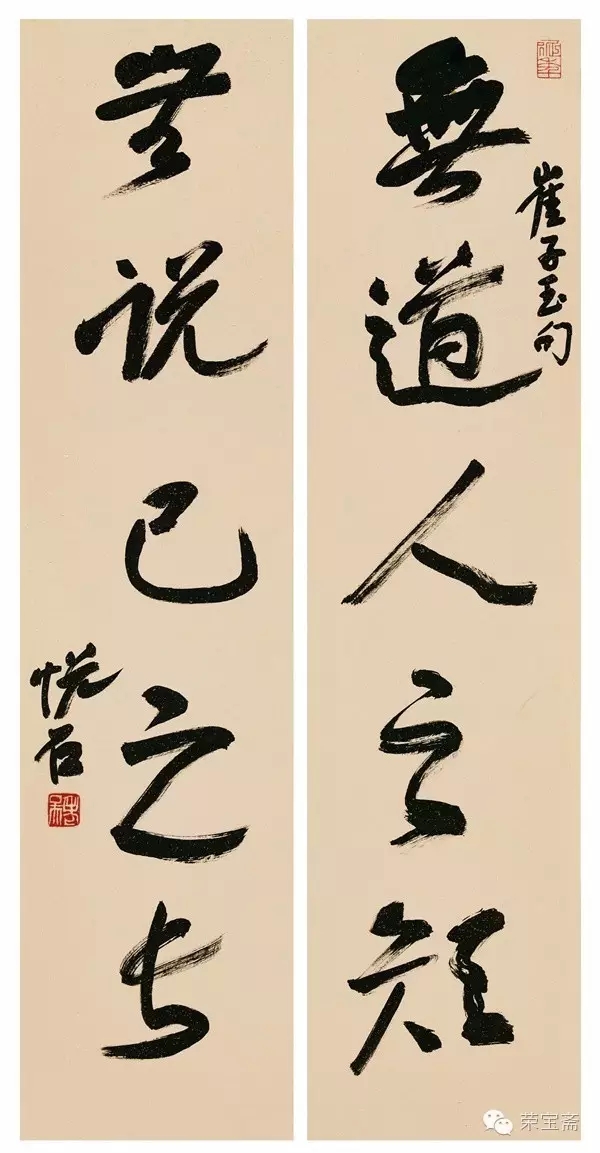 無道人之短
崔子玉句
無说己之长
悦石
荣宝斋